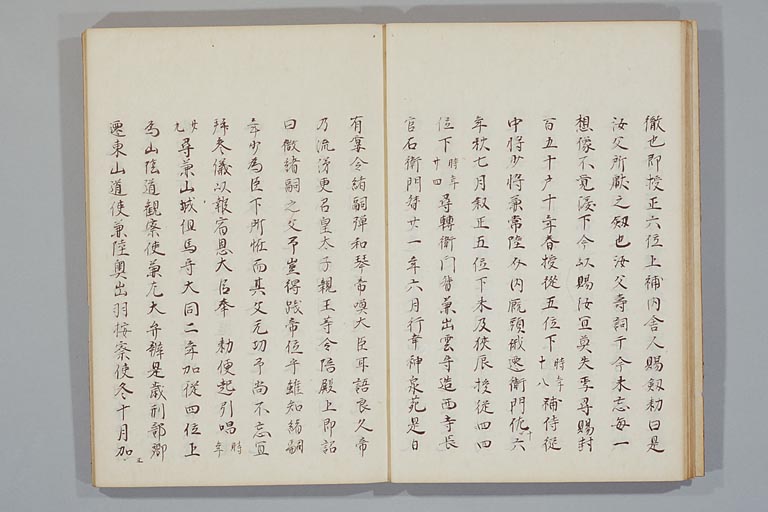 徹也即授正六位上補内舎人賜劔勅曰是
汝父所獻之劔也汝父壽詞于今未忘毎一
想像不覺涙下今以賜汝宜莫失焉尋賜封
百五十戸十年春授從五位下時年十八補侍從
中將少將兼常陸介内厩頭俄遷衛門佐十六
年秋七月叙正五位下未及狹辰授從四四
位下時年廿四尋轉衛門督兼出雲守造西寺長
官右衛門督廿一年六月行幸神泉苑是日
有宴令緒嗣彈和琴帝喚大臣耳語良久帝
乃流涕更召皇太子親王等令陪殿上即詔
曰微緒嗣之父予豈得踐帝位乎雖知緒嗣
年少為臣下所恠而其父元功予尚不忘宜
拜參儀以報宿恩大臣奉 勅便起引唱時年
廿九尋兼山城但馬守大同二年加從四位上
為山陰道觀察使兼左大弁辭是歳刑部卿
遷東山道使兼陸奧出羽按察使冬十月加